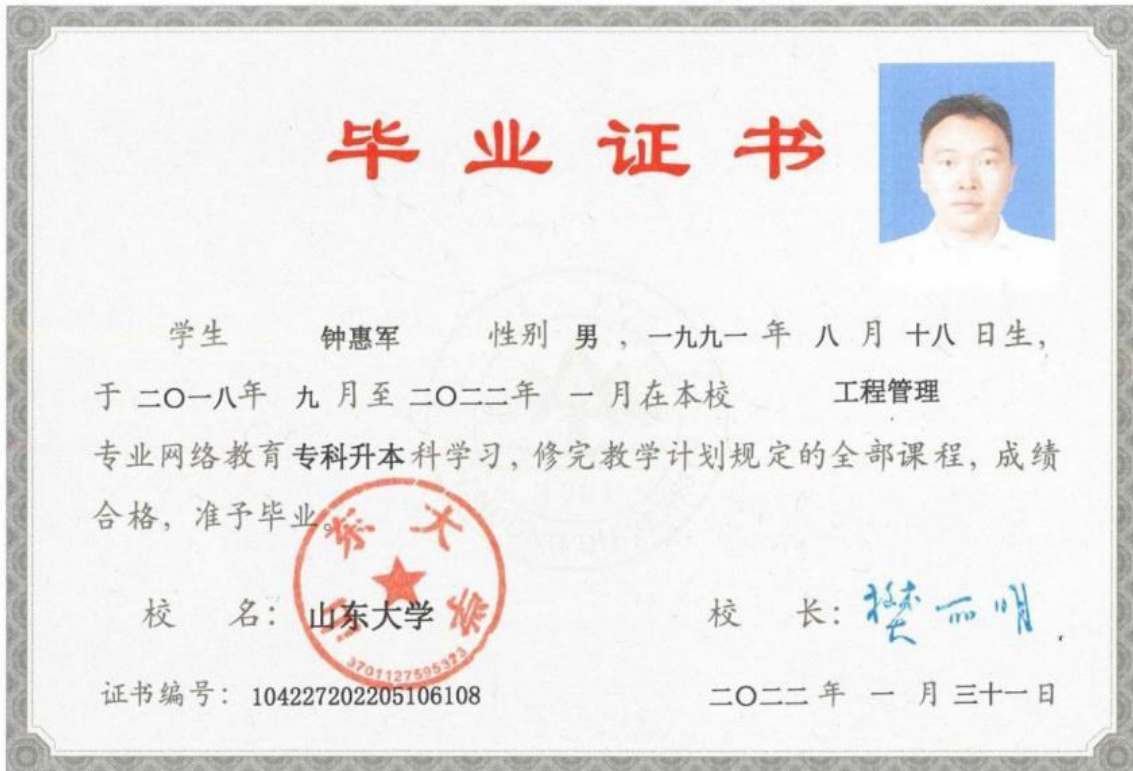 毕业证书
学生 钟惠军 性别 男，一九九一 年 八 月 十八 日生，
于 二〇一八年 九 月至 二〇二二年 一 月在本校 工程管理
专业网络教育 专科升本 科学习，修完教学计划规定的全部课程，成绩
合格，准予毕业。
山东大学
校 名：山东大学 校 长：樊丽明
3701127595323
证书编号：104227202205106108 二〇二二 年 一 月 三十一 日